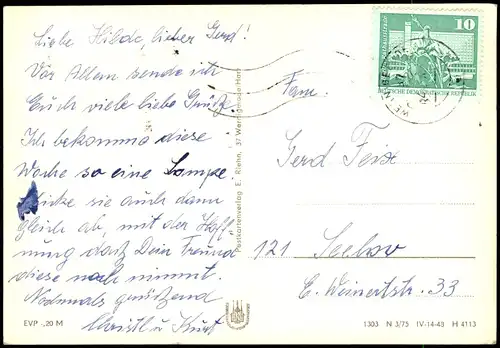 Liebe Hilde, lieber Gerd!
Vor Allem sende ich
Euch viele liebe Grüße.
Ich bekomme diese
Woche so eine Lampe.
sie auch dann
gleich ab, mit der Hoff-
nung daß Dein Freund
diese noch nimmt.
Nochmals grüßend
Christl u. Kurt
Fam.
Gerd Feix
121 Seelow
E. Weinertstr. 33
10
DEUTSCHE DEMOKRATISCHE REPUBLIK
Postkartenverlag E. Riehn, 37 Wernigerode-Harz
EVP -,20 M
1303 N 3/75 IV-14-48 H 4113